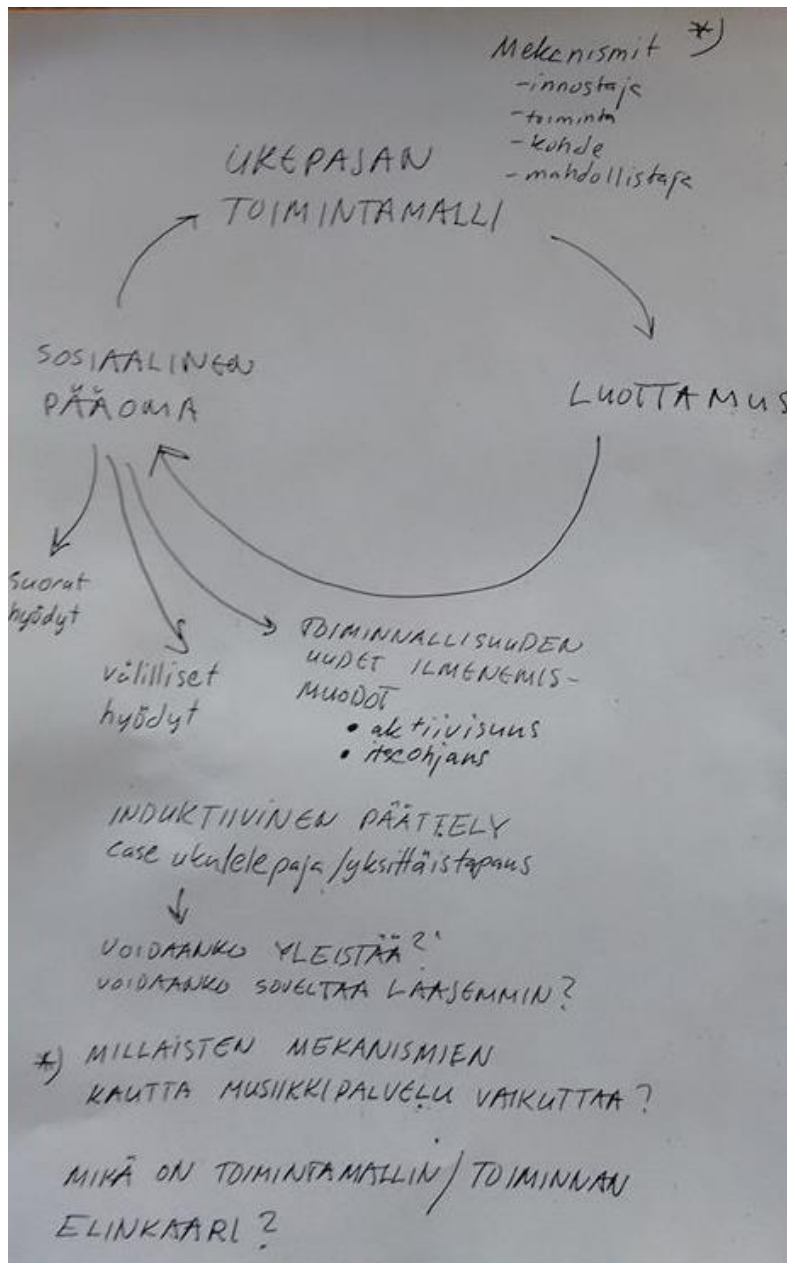 Mekanismit *)
-innostaja
-toiminta
-kohde
-mahdollistaja
UKEPAJAN
TOIMINTAMALLI
SOSIAALINEN
PÄÄOMA
LUOTTAMUS
suorat
hyödyt
välilliset
hyödyt
TOIMINNALLISUUDEN
UUDET ILMENEMIS-
MUODOT
• aktiivisuus
• itseohjaus
INDUKTIIVINEN PÄÄTTELY
case ukulelepaja/yksittäistapaus
VOIDAANKO YLEISTÄÄ?
VOIDAANKO SOVELTAA LAAJEMMIN?
*) MILLAISTEN MEKANISMIEN
KAUTTA MUSIIKKIPALVELU VAIKUTTAA?
MIKÄ ON TOIMINTAMALLIN/TOIMINNAN
ELINKAARI?